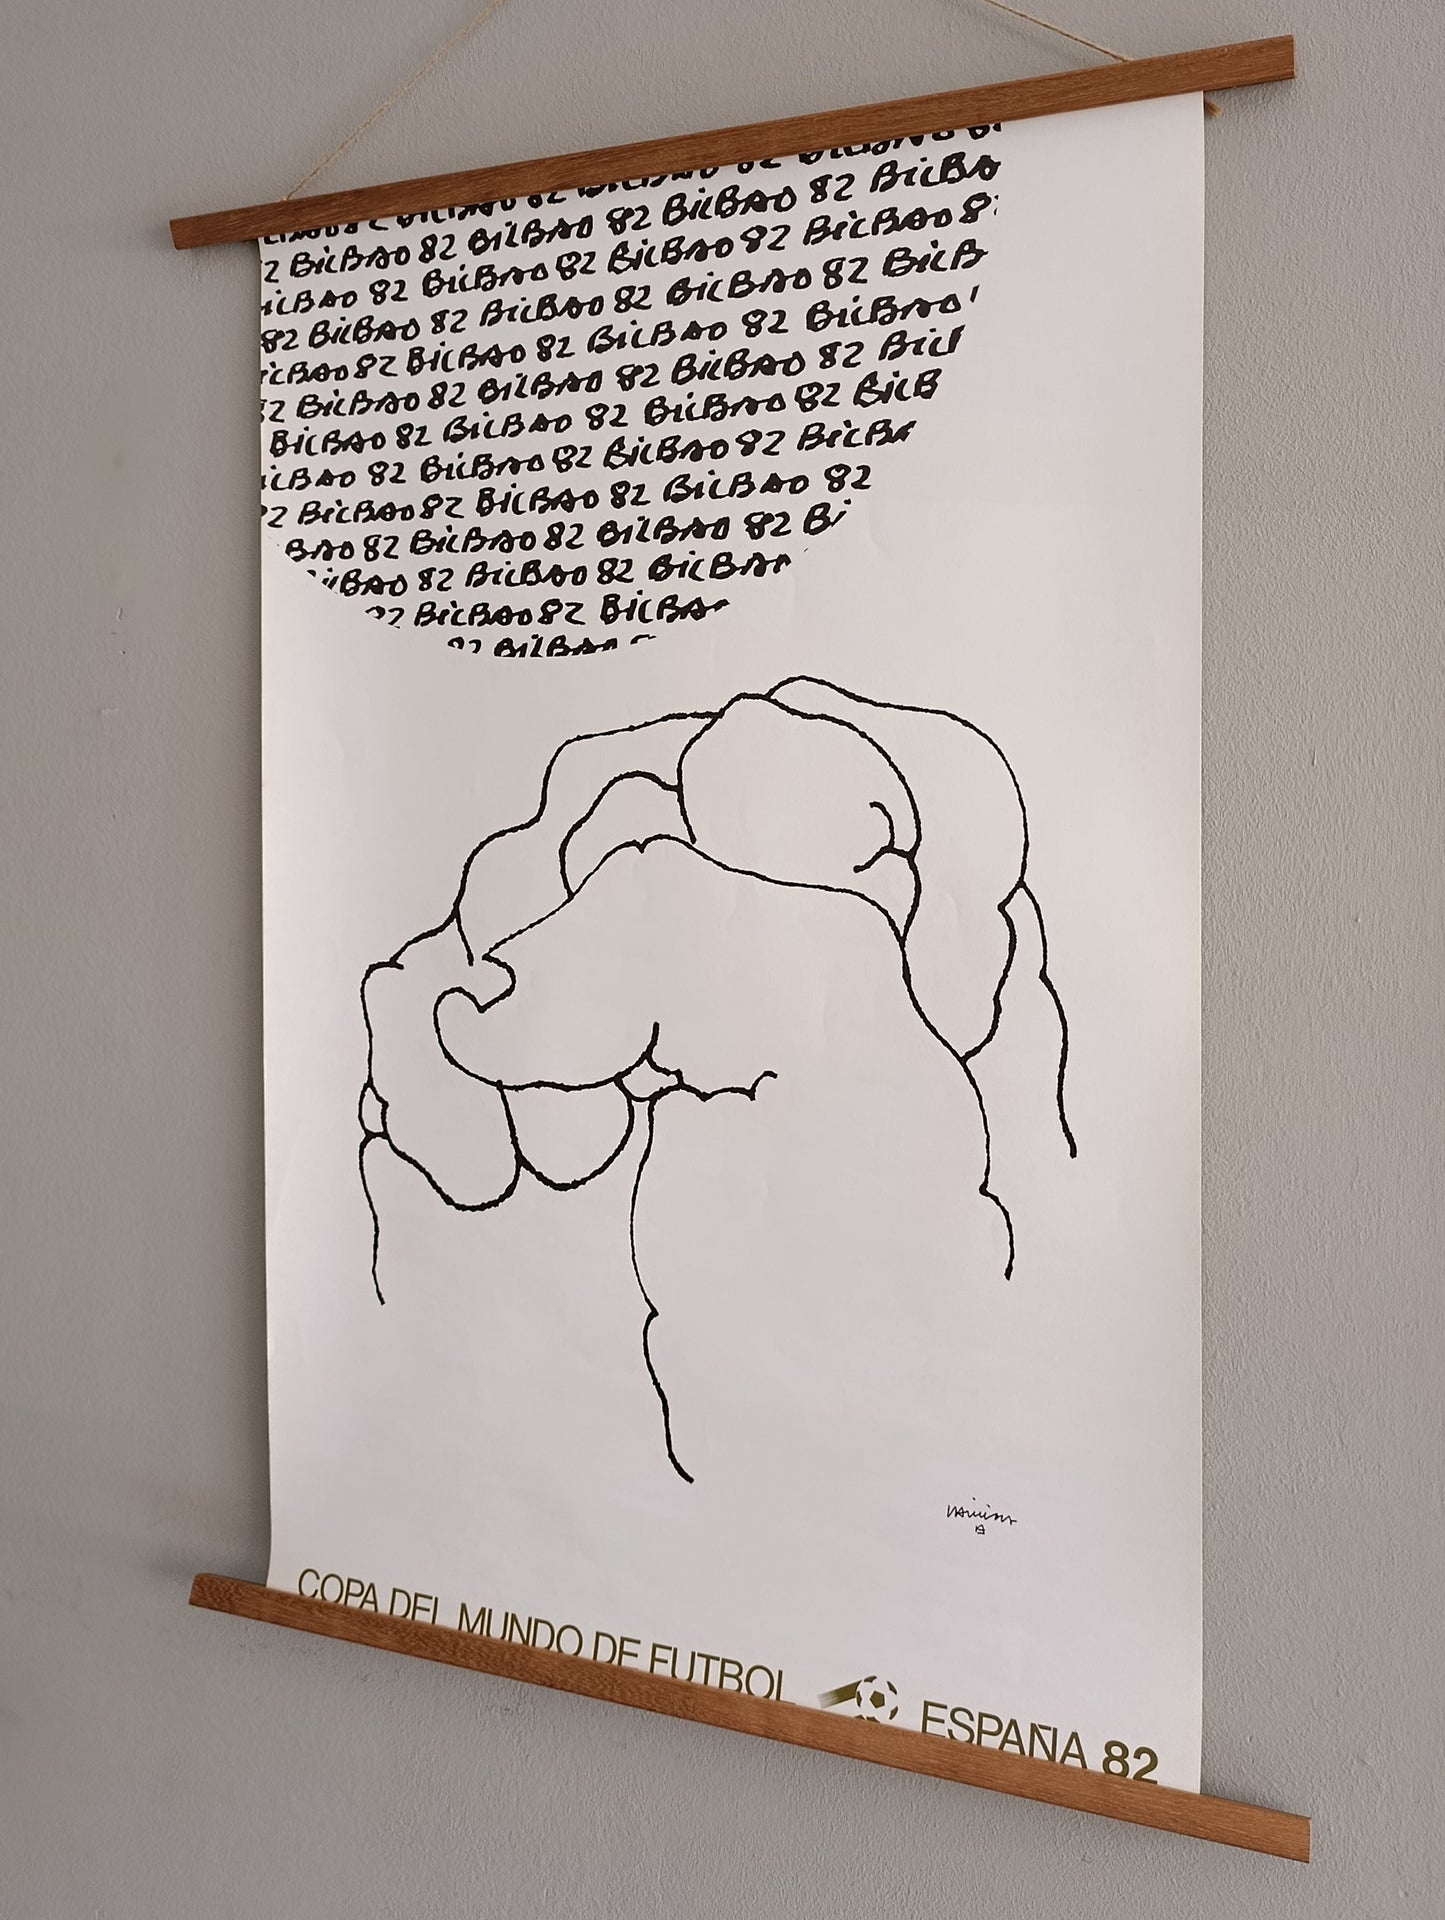 LBAO 82 BiLBAO 82 BiLBAO 82 BiLBAO 82 Bi
2 BiLBAO 82 BiLBAO 82 BiLBAO 82 BiLBA
iLBAO 82 BiLBAO 82 BiLBAO 82 BiLBAO 8
82 BiLBAO 82 BiLBAO 82 BiLBAO 82 BiLB
iLBAO 82 BiLBAO 82 BiLBAO 82 BiLBAO
2 BiLBAO 82 BiLBAO 82 BiLBAO 82 BiL
BiLBAO 82 BiLBAO 82 BiLBAO 82 BiLB
iLBAO 82 BiLBAO 82 BiLBAO 82 BiLBA
2 BiLBAO 82 BiLBAO 82 BiLBAO 82
BAO 82 BiLBAO 82 BiLBAO 82 Bi
iLBAO 82 BiLBAO 82 BiLBA
82 BiLBAO 82 BiLBA
82 BiLBAO
COPA DEL MUNDO DE FUTBOL ESPAÑA 82